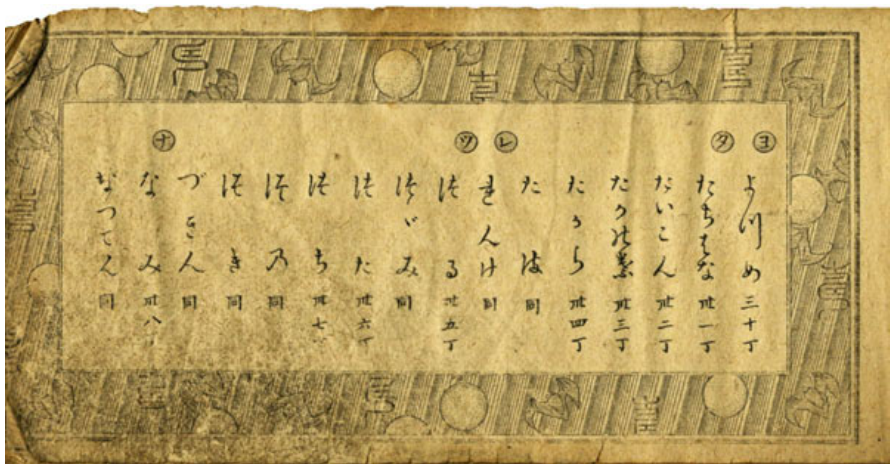 ヨ
よつめ 三十丁
タ
たちばな 卅一丁
たいこん 卅二丁
たかの葉 卅三丁
たから 卅四丁
たま 同
レ
れんげ 同
ツ
つる 卅五丁
つゞみ 同
つた 卅六丁
つち 卅七
つの 同
つき 同
づきん 同
ナ
なみ 卅八丁
なつてん 同